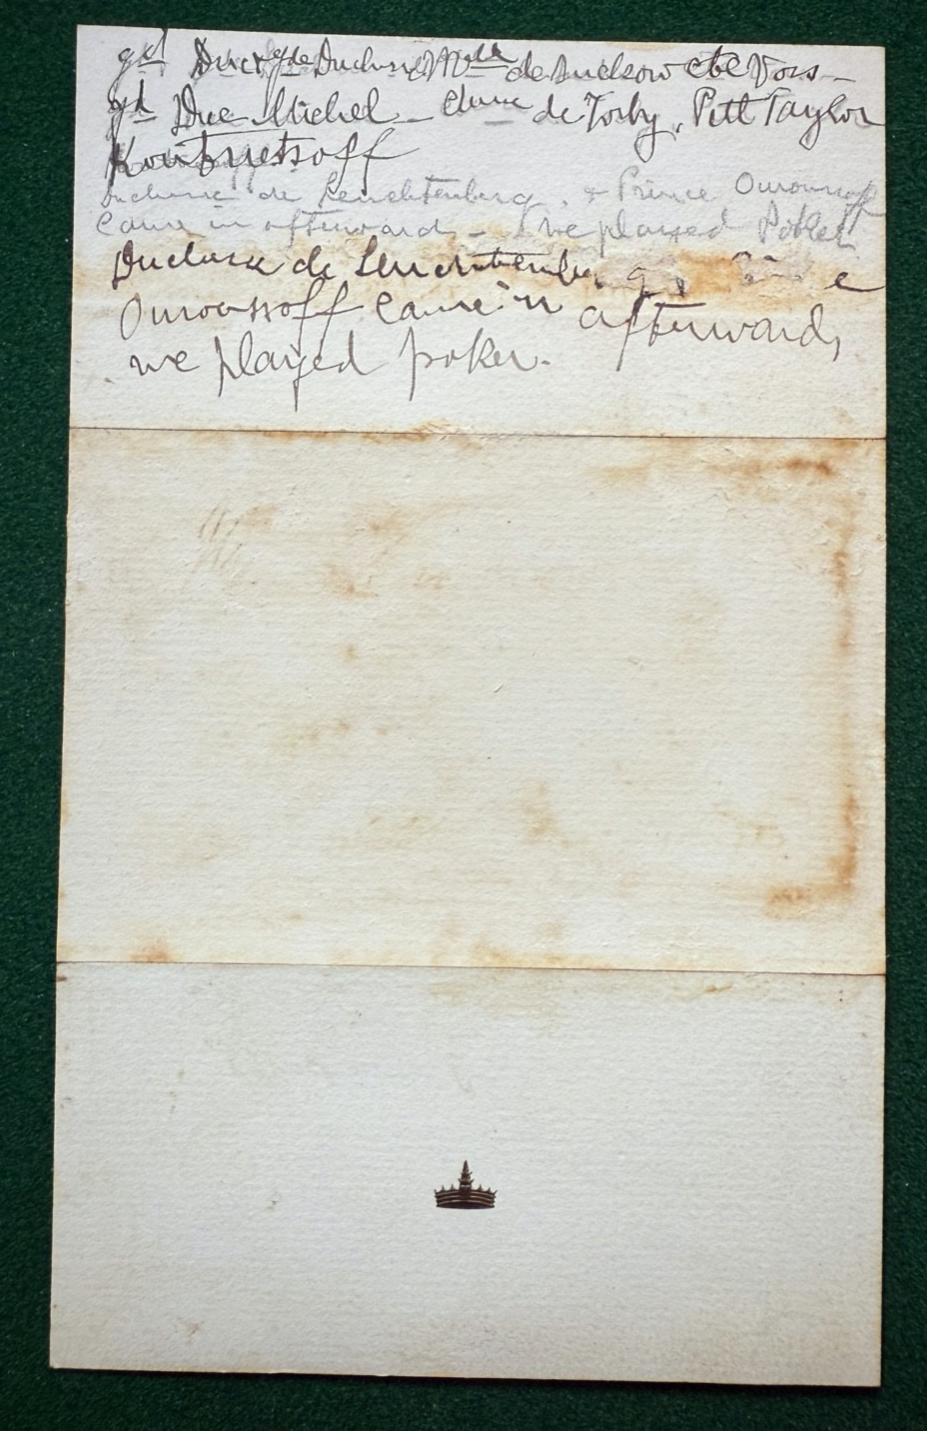 gd Duc & gde Duchesse Mlle de Luckow cte Voss —
gd Duc Michel — Ctesse de Torby, Pitt Taylor
Koutznetsoff
Duchesse de Leuchtenberg, & Prince Ouroussoff
came in afterwards — & we played Poker
Duchesse de Leuchtenberg
Ouroussoff came in afterwards,
we played poker.